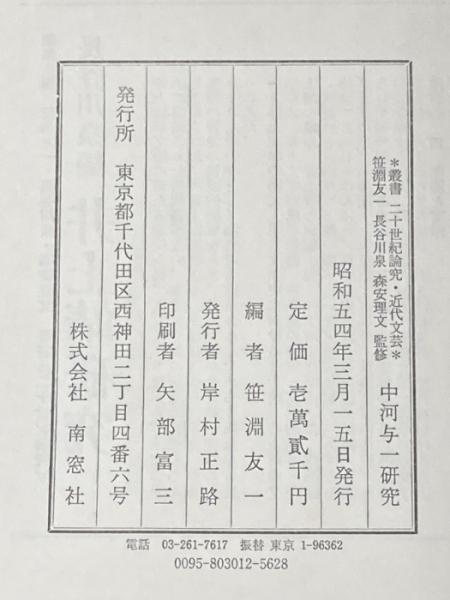 *叢書 二十世紀論究・近代文芸*
笹淵友一 長谷川泉 森安理文 監修
中河与一研究
昭和五四年三月一五日発行
定価 壱萬貳千円
編者 笹淵友一
発行者 岸村正路
印刷者 矢部富三
発行所 東京都千代田区西神田二丁目四番六号
株式会社 南窓社
電話 03-261-7617 振替 東京 1-96362
0095-803012-5628